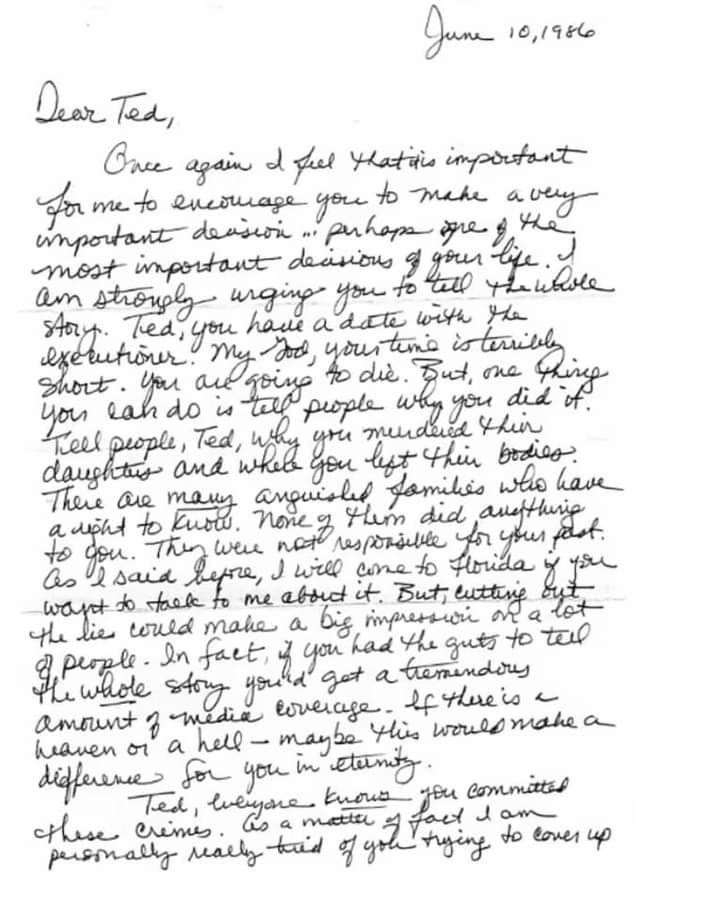 June 10, 1986
Dear Ted,
Once again I feel that it is important
for me to encourage you to make a very
important decision ... perhaps one of the
most important decisions of your life. I
am strongly urging you to tell the whole
story. Ted, you have a date with the
executioner. My God, your time is terribly
short. You are going to die. But, one thing
you can do is tell people why you did it.
Tell people, Ted, why you murdered their
daughters and where you left their bodies.
There are many anguished families who have
a right to know. None of them did anything
to you. They were not responsible for your past.
As I said before, I will come to Florida if you
want to talk to me about it. But, cutting out
the lies could make a big impression on a lot
of people. In fact, if you had the guts to tell
the whole story you'd get a tremendous
amount of media coverage. If there is a
heaven or a hell - maybe this would make a
difference for you in eternity.
Ted, everyone knows you committed
these crimes. As a matter of fact I am
personally really tired of you trying to cover up